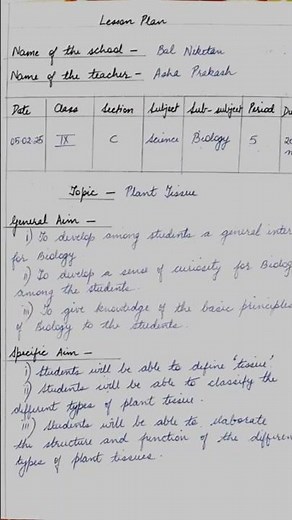 Lesson Plan
Name of the school - Bal Niketan
Name of the teacher - Asha Prakash
Date Class Section Subject Sub-subject Period
05.02.25 IX C Science Biology 5
Topic - Plant Tissue
General Aim -
i) To develop among students a general
for Biology
ii) To develop a sense of curiosity for
among the students.
iii) To give knowledge of the basic principles
of Biology to the students.
Specific Aim -
i) Students will be able to define 'tissue'.
ii) Students will be able to classify the
different types of plant tissue.
iii) Students will be able to elaborate
the structure and function of the
types of plant tissues.